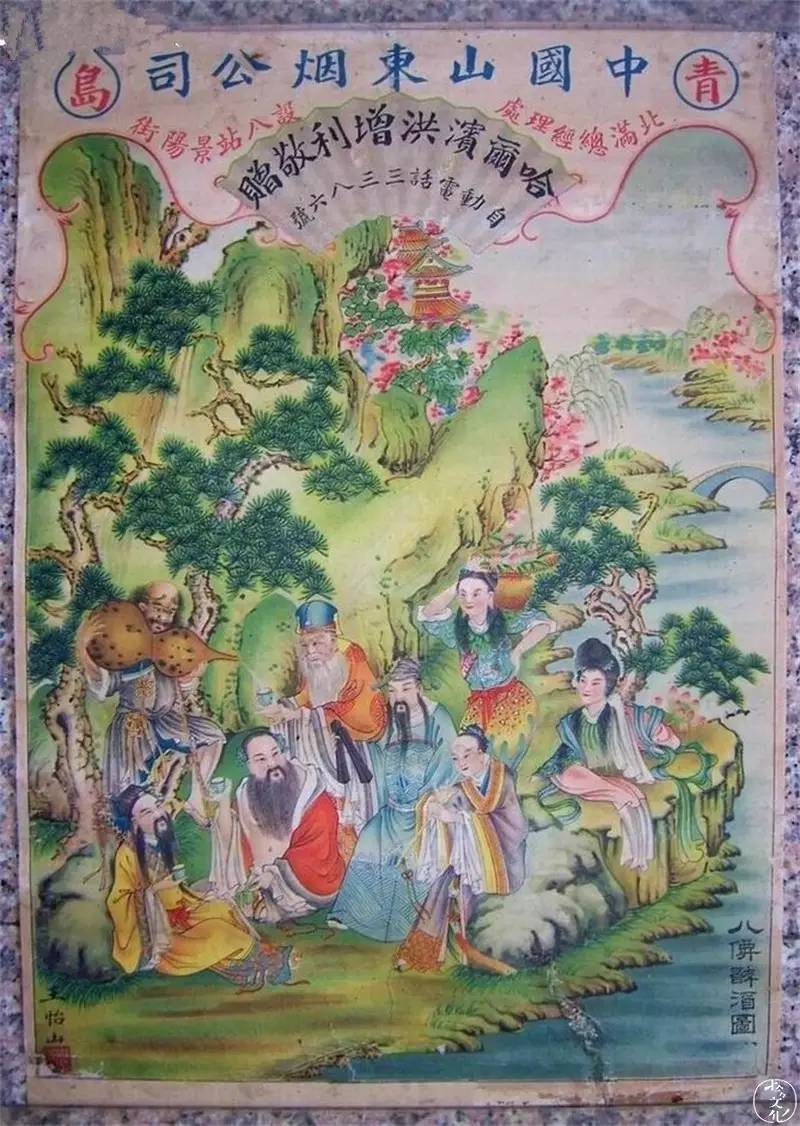 青 中國山東烟公司 島
北滿總經理處 設八站景陽街
哈爾濱洪增利敬贈
自動電話三三八六號
八僊醉酒圖
王怡山